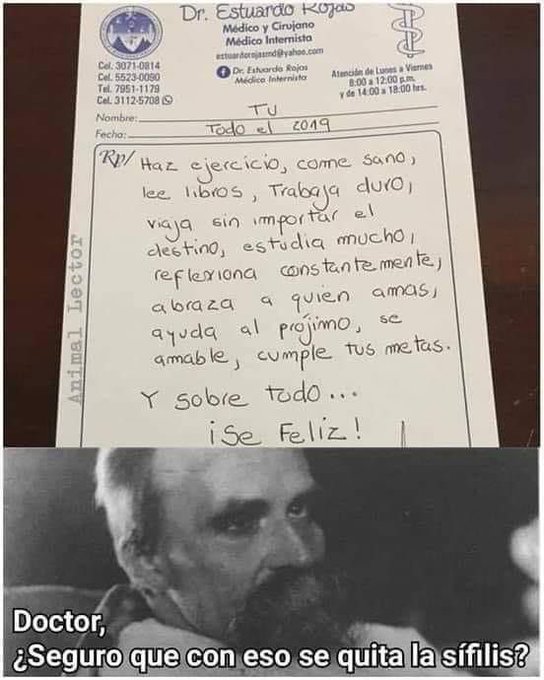 Dr. Estuardo Rojas
Médico y Cirujano
Médico Internista
estuardorojasmd@yahoo.com
Dr. Estuardo Rojas
Médico Internista
Cel. 3071-0814
Cel. 5523-0090
Tel. 7951-1179
Cel. 3112-5708
Atención de Lunes a Viernes
8:00 a 12:00 p.m.
y de 14:00 a 18:00 hrs.
Nombre: Tu
Fecha: Todo el 2019
Rp/ Haz ejercicio, come sano,
lee libros, Trabaja duro,
viaja sin importar el
destino, estudia mucho,
reflexiona constantemente,
abraza a quien amas,
ayuda al prójimo, se
amable, cumple tus metas.
Y sobre todo...
¡Se Feliz!
Animal Lector
Doctor,
¿Seguro que con eso se quita la sífilis?